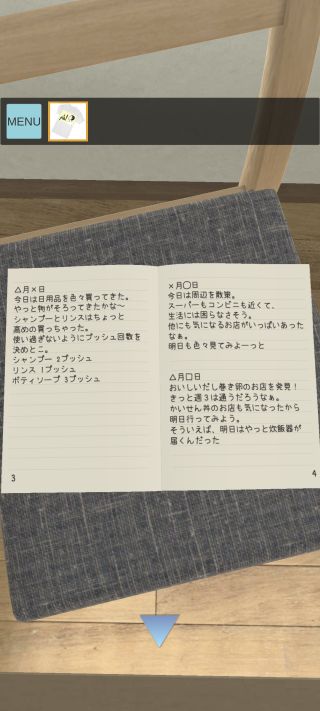 MENU
△月×日
今日は日用品を色々買ってきた。
やっと物がそろってきたかな～
シャンプーとリンスはちょっと
高めの買っちゃった。
使い過ぎないようにプッシュ回数を
決めとこ。
シャンプー 2プッシュ
リンス 1プッシュ
ボディソープ 3プッシュ
3
×月〇日
今日は周辺を散策。
スーパーもコンビニも近くて、
生活には困らなさそう。
他にも気になるお店がいっぱいあった
なぁ。
明日も色々見てみよーっと
△月□日
おいしいだし巻き卵のお店を発見！
きっと週3は通うだろうなぁ。
かいせん丼のお店も気になったから
明日行ってみよう。
そういえば、明日はやっと炊飯器が
届くんだった
4